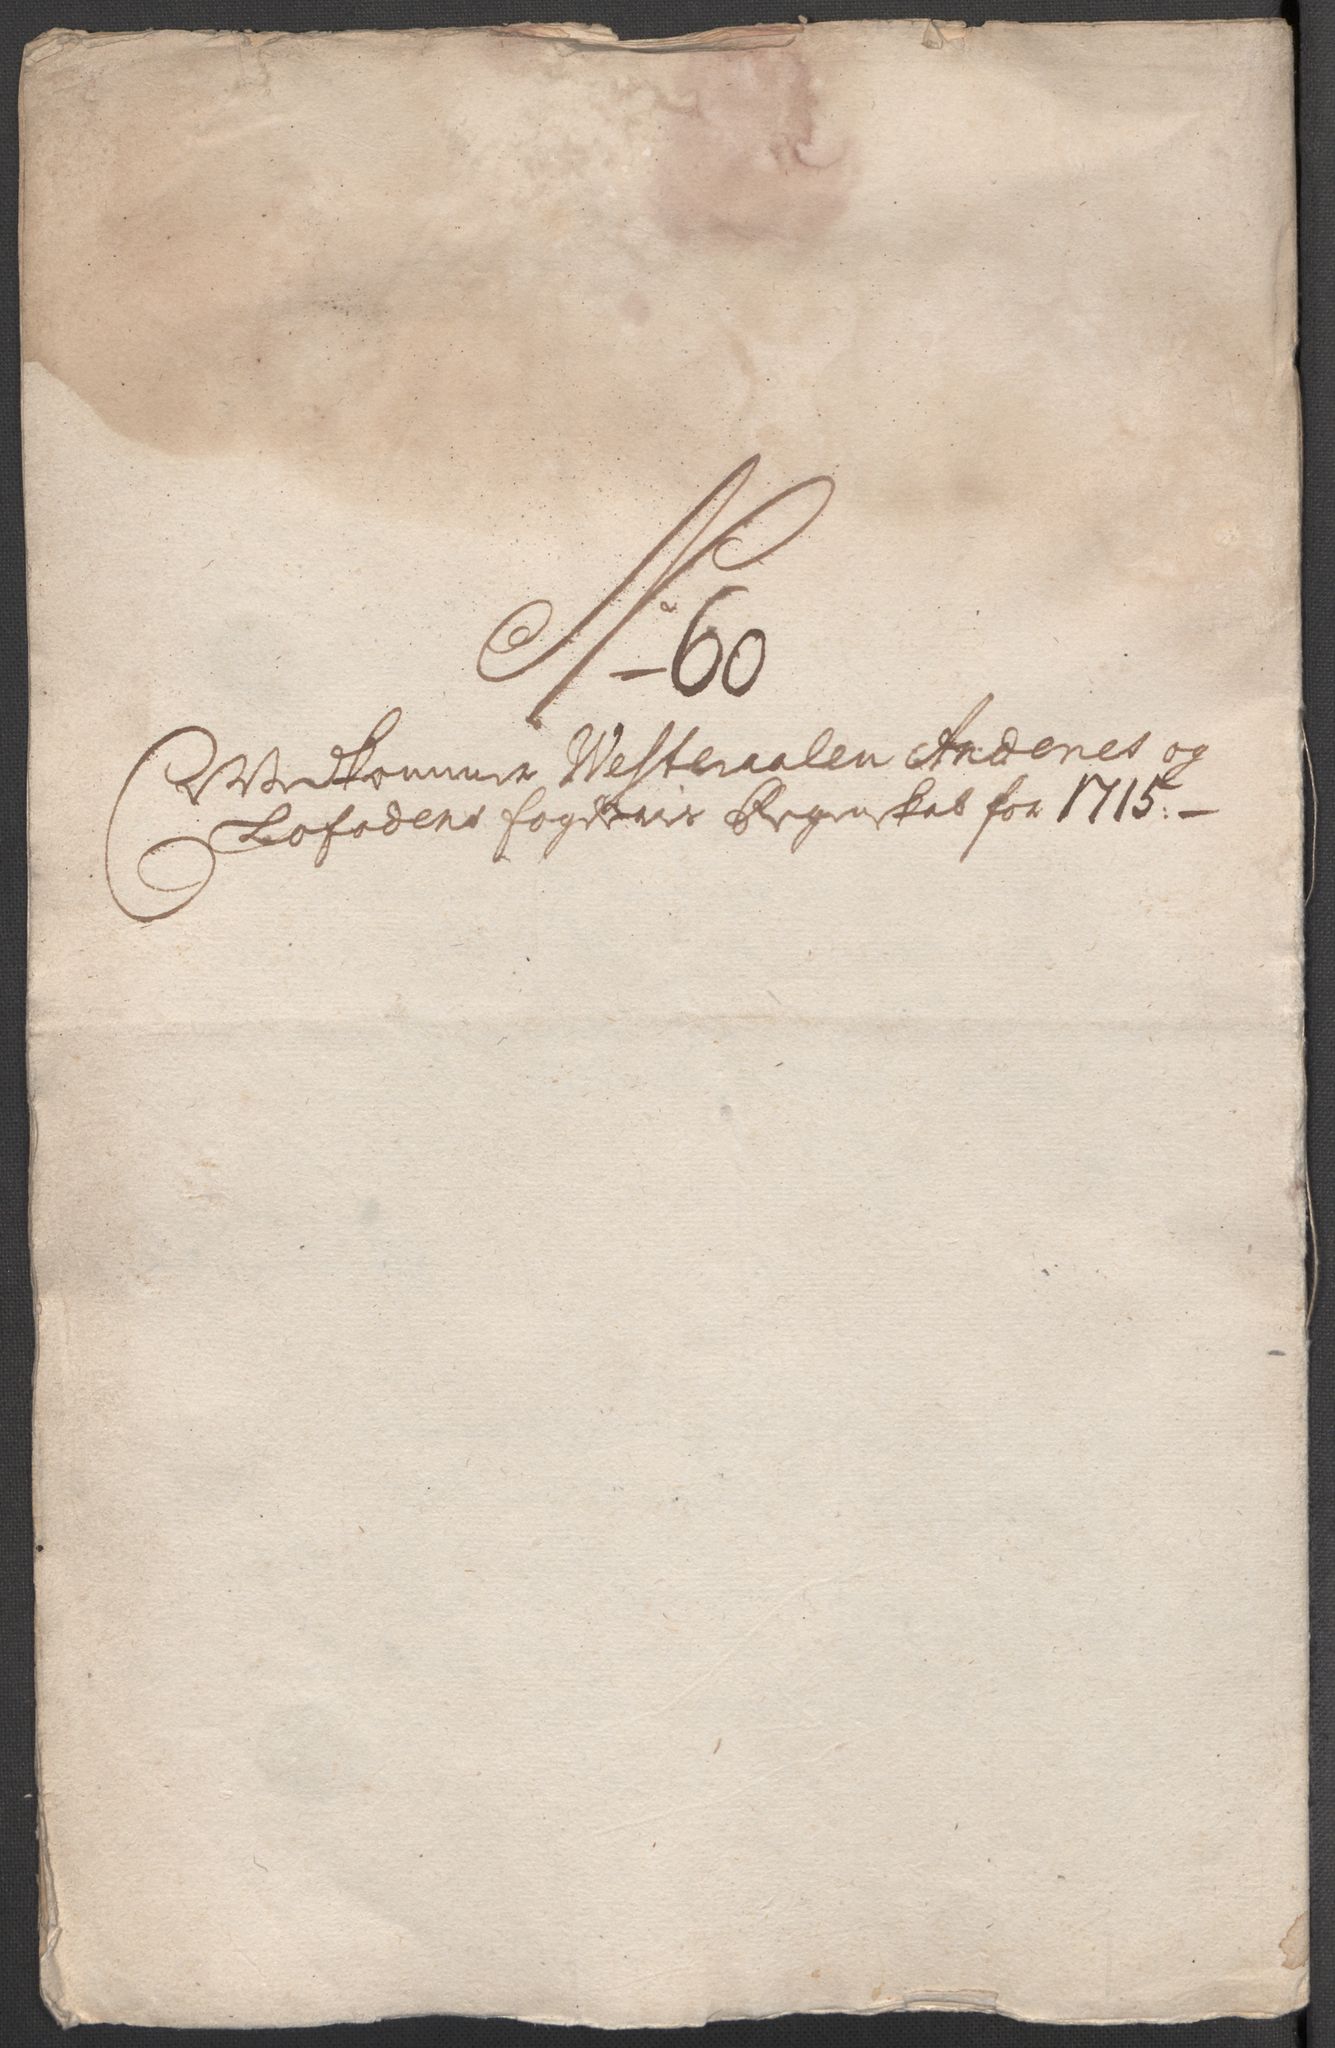 No 60
Vedkommer Westeraalen Andenes og
Lofodens fogderis Regenskab for 1715.